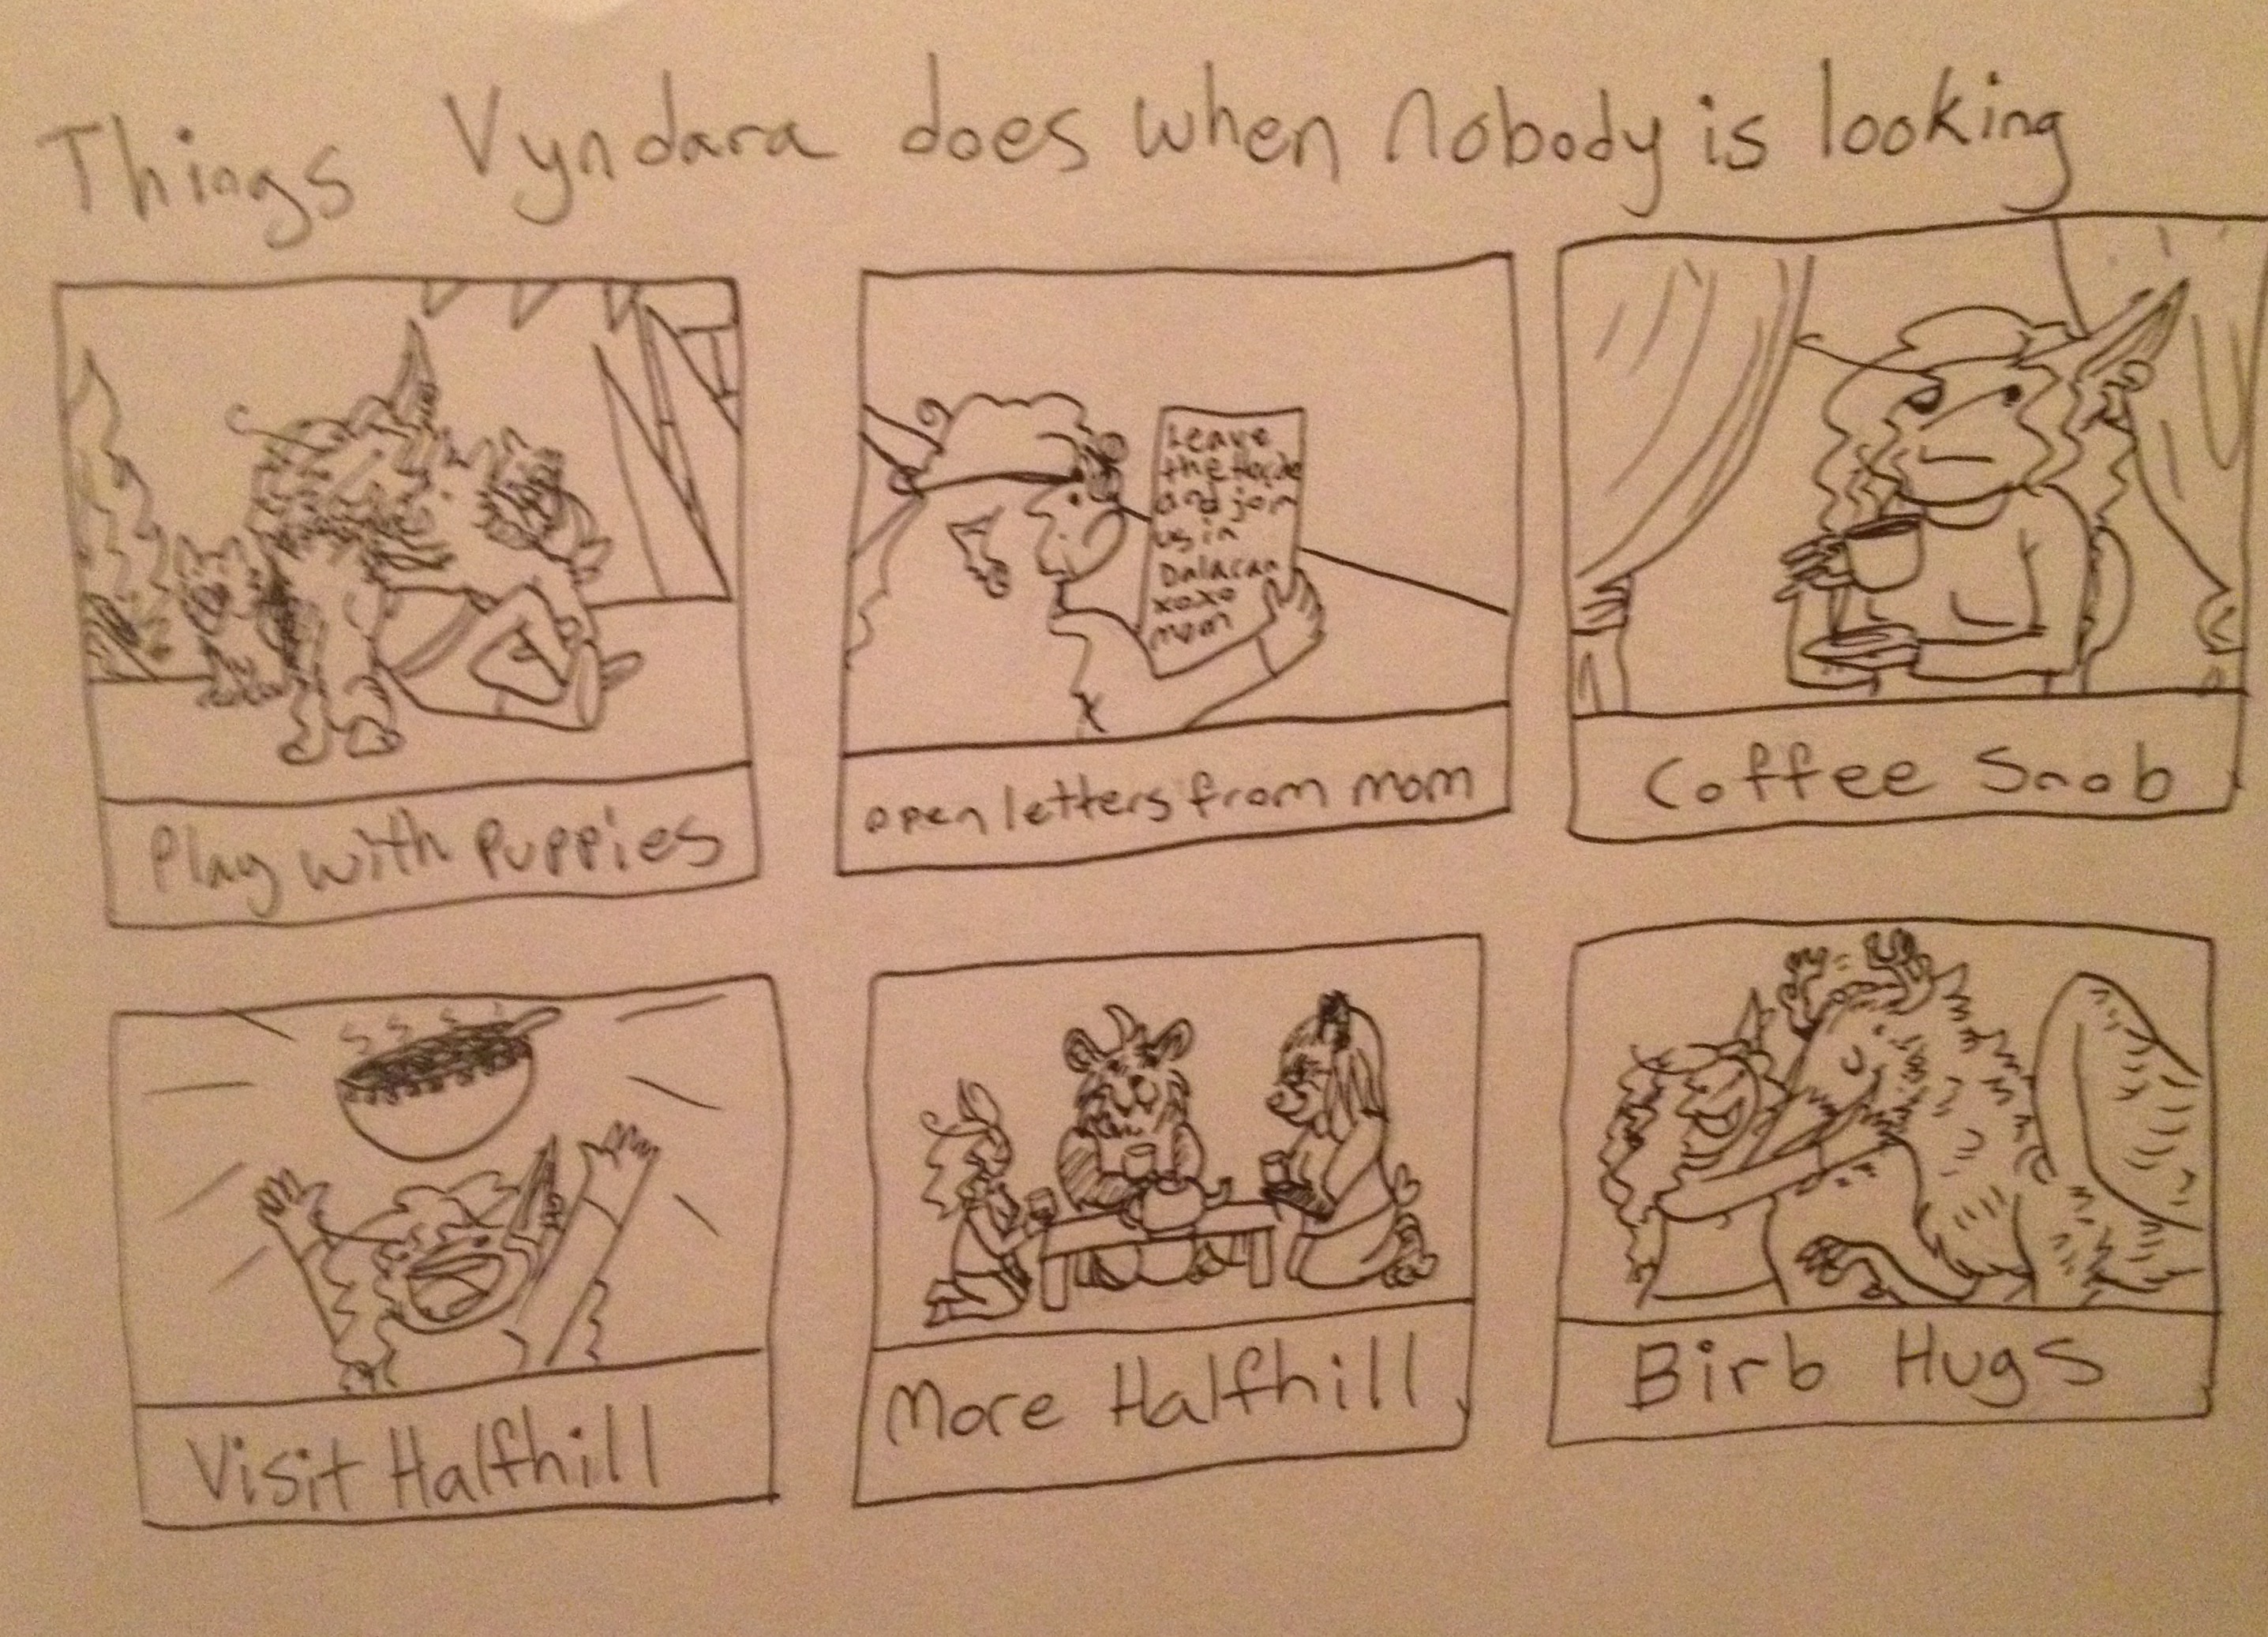 Things Vyndara does when nobody is looking
Play with Puppies
Leave
the Horde
and join
us in
Dalaran
xoxo
mom
open letters from mom
Coffee Snob
Visit Halfhill
More Halfhill
Birb Hugs